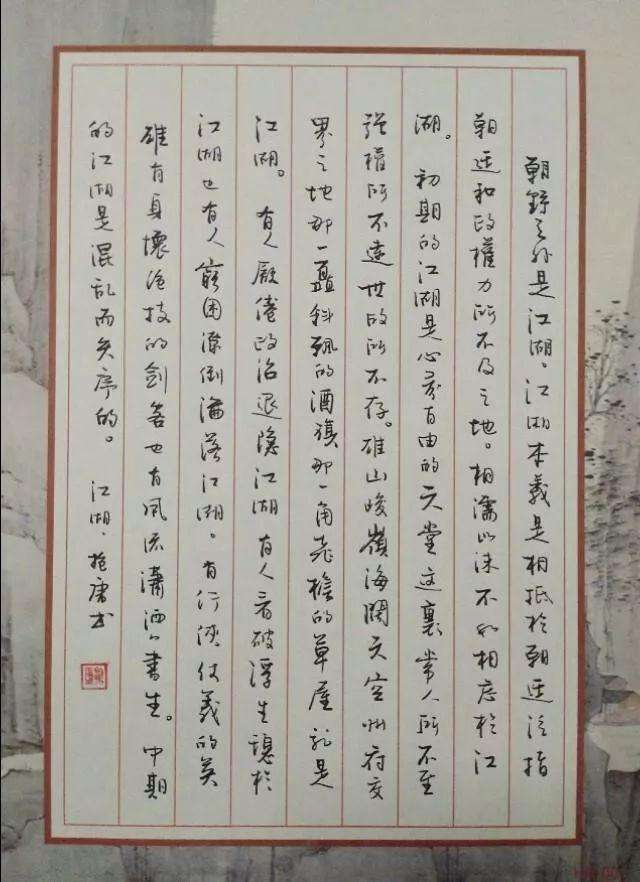 朝野之外是江湖。江湖本義是相抵於朝廷泛指
朝廷和政權力所不及之地。相濡以沫不如相忘於江
湖。初期的江湖是心灵自由的天堂這裏常人所不至
強權所不達世故所不存。雄山峻嶺海闊天空州府交
界之地那一盏斜飄的酒旗那一角飛檐的草屋就是
江湖。有人厭倦政治退隐江湖有人看破浮生隐於
江湖也有人窮困潦倒淪落江湖。有行俠仗義的英
雄有身懷绝技的劍客也有風流瀟洒書生。中期
的江湖是混乱而失序的。江湖.抱唐书